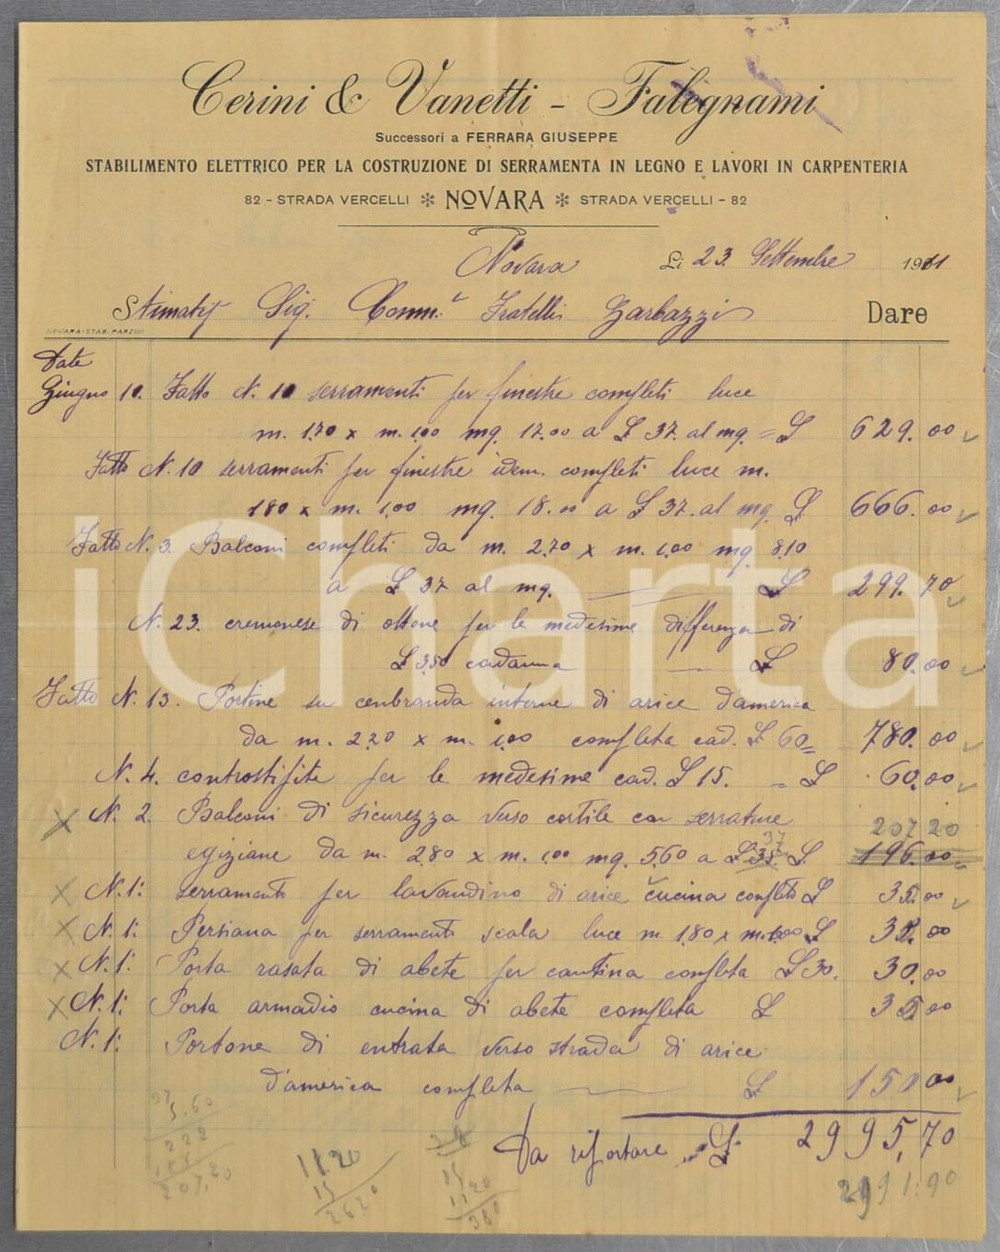 Cerini & Vanetti - Falegnami
Successori a FERRARA GIUSEPPE
STABILIMENTO ELETTRICO PER LA COSTRUZIONE DI SERRAMENTA IN LEGNO E LAVORI IN CARPENTERIA
82 - STRADA VERCELLI * NOVARA * STRADA VERCELLI - 82
Novara Li 23 Settembre 1911
Stimatis Sig. Comm. Fratelli Garbazzi Dare
NOVARA-STAB. PARZINI
Date
Giugno 10. Fatto N. 10 serramenti per finestre completi luce
m. 1.70 x m. 1.00 mq. 17.00 a £ 37. al mq. = £ 629.00
Fatto N. 10 serramenti per finestre idem. completi luce m.
180 x m. 1.00 mq. 18.00 a £ 37. al mq. £ 666.00
Fatto N. 3. Balconi completi da m. 2.70 x m. 1.00 mq 8.10
a £ 37 al mq. £ 299.70
N. 23. cremonese di ottone per le medesime differenza di
£ 3.50 cadauna £ 80.00
Fatto N. 13. Portine su interne di arice d'america
da m. 2.20 x m. 1.00 completa cad. £ 60 = 780.00
N. 4. per le medesime cad. £ 15. = £ 60.00
x N. 2. Balconi di sicurezza verso cortile con serrature 207 20
egiziane da m. 2.80 x m. 1.00 mq. 5.60 a £ 35 37 £ 196.00
x N. 1: serramento per lavandino di arice cucina completo £ 35.00
x N. 1: Persiana per serramenti scala luce m 1.80 x m. 1.00 £
x N. 1: Porta rasata di abete per cantina completa £ 30. 30.00
x N. 1: Porta armadio cucina di abete completa £ 35.00
N. 1: Portone di entrata verso strada di arice
d'america completa £ 150.00
Da riportare £ 2995,70
37
5.60
222
185
207,20
11.20
15
2620
15
1120
380
2991.90
iCharta